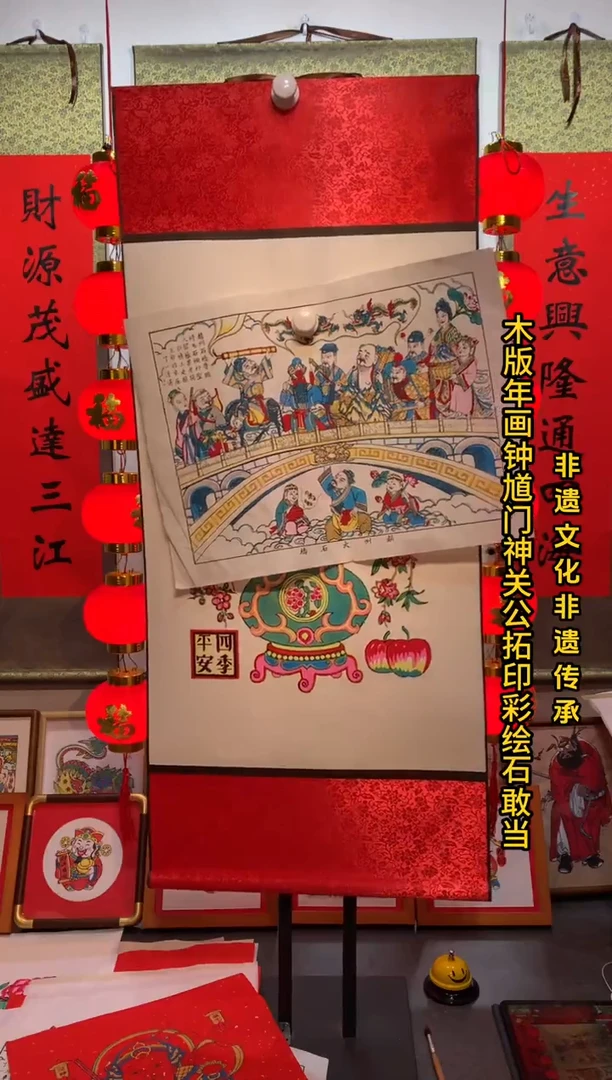 生意興隆通
財源茂盛達三江
非遗文化非遗传承
木版年画钟馗门神关公拓印彩绘石敢当
福
福
四季
平安